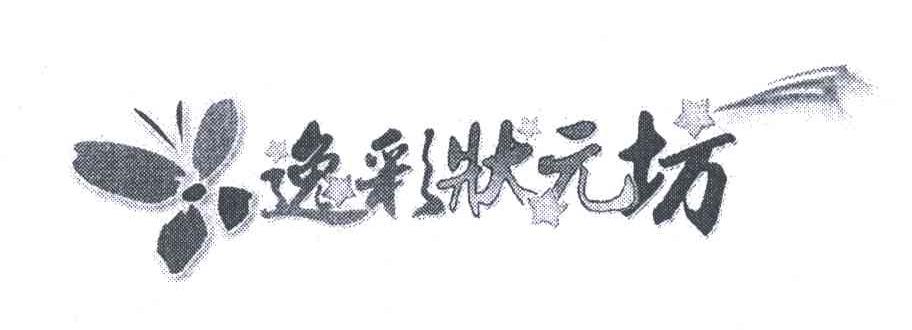 逸彩狀元坊